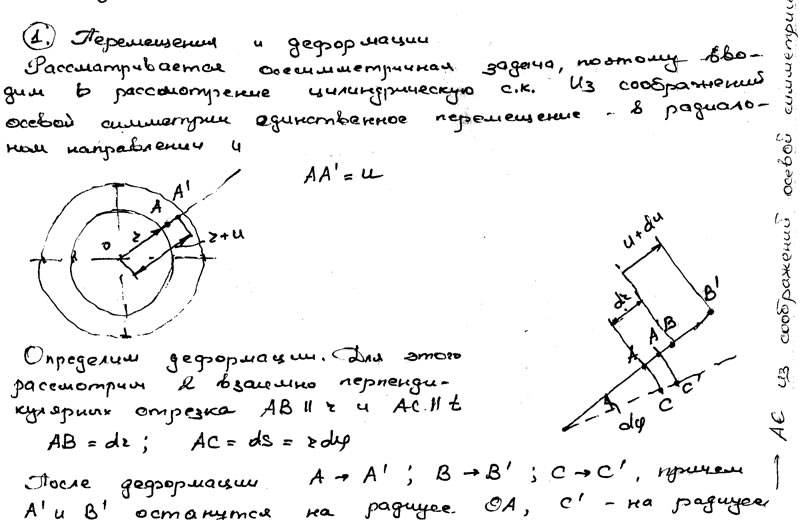 1. Перемещения и деформации
Рассматривается осесимметричная задача, поэтому вво-
дим в рассмотрение цилиндрическую с.к. Из соображений
осевой симметрии единственное перемещение - в радиаль-
ном направлении u
AA' = u
A A'
O
r
r+u
u+du
dr
B'
A A' B
C C'
dφ
Определим деформации. Для этого
рассмотрим 2 взаимно перпенди-
кулярных отрезка AB || r и AC || t
AB = dr ; AC = ds = r dφ
После деформации A → A' ; B → B' ; C → C', причем
A' и B' останутся на радиусе OA, C' - на радиусе
AC из соображений осевой симметрии